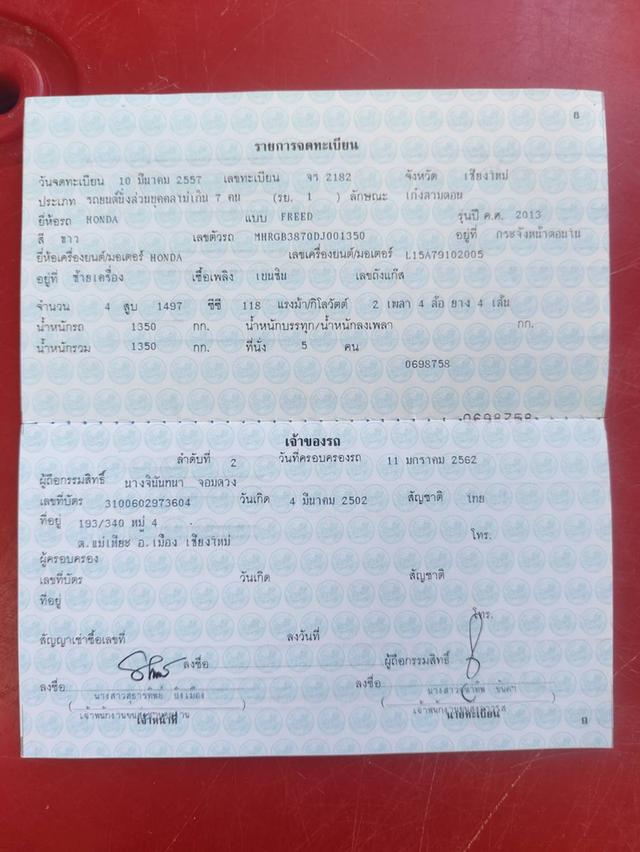 8
รายการจดทะเบียน
วันจดทะเบียน 10 มีนาคม 2557 เลขทะเบียน จร 2182 จังหวัด เชียงใหม่
ประเภท รถยนต์นั่งส่วนบุคคลไม่เกิน 7 คน (รย. 1 ) ลักษณะ เก๋งสามตอน
ยี่ห้อรถ HONDA แบบ FREED รุ่นปี ค.ศ. 2013
สี ขาว เลขตัวรถ MHRGB3870DJ001350 อยู่ที่ กระจังหน้าตอนใน
ยี่ห้อเครื่องยนต์/มอเตอร์ HONDA เลขเครื่องยนต์/มอเตอร์ L15A79102005
อยู่ที่ ซ้ายเครื่อง เชื้อเพลิง เบนซิน เลขถังแก๊ส
จำนวน 4 สูบ 1497 ซีซี 118 แรงม้า/กิโลวัตต์ 2 เพลา 4 ล้อ ยาง 4 เส้น
น้ำหนักรถ 1350 กก. น้ำหนักบรรทุก/น้ำหนักลงเพลา กก.
น้ำหนักรวม 1350 กก. ที่นั่ง 5 คน
0698758
0698758
เจ้าของรถ
ลำดับที่ 2 วันที่ครอบครองรถ 11 มกราคม 2562
ผู้ถือกรรมสิทธิ์ นางจินันทนา จอมดวง
เลขที่บัตร 3100602973604 วันเกิด 4 มีนาคม 2502 สัญชาติ ไทย
ที่อยู่ 193/340 หมู่ 4
ต.แม่เหียะ อ.เมือง เชียงใหม่ โทร.
ผู้ครอบครอง
เลขที่บัตร วันเกิด สัญชาติ
ที่อยู่
โทร.
สัญญาเช่าซื้อเลขที่ ลงวันที่
ลงชื่อ ผู้ถือกรรมสิทธิ์
ลงชื่อ นางสาวสุธารทิพย์ ลงชื่อ
เจ้าหน้าที่ นายทะเบียน